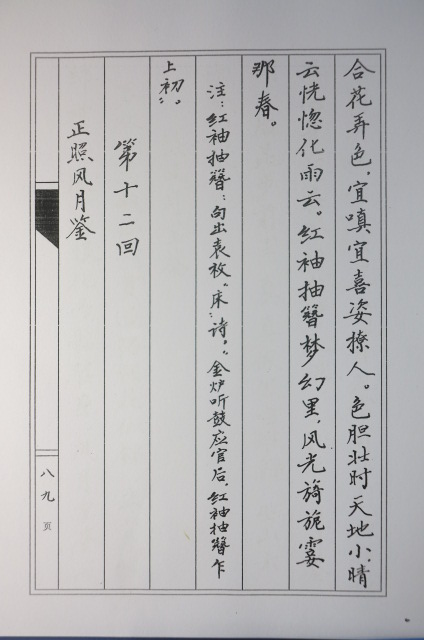 合花弄色，宜嗔宜喜姿撩人。色胆壮时天地小，晴
云恍惚化雨云。红袖抽簪梦幻里，风光旖旎霎
那春。
注：红袖抽簪：句出袁枚“床”诗。“金炉听鼓应官后，红袖抽簪乍
上初”。
第十二回
正照风月鉴
八九页